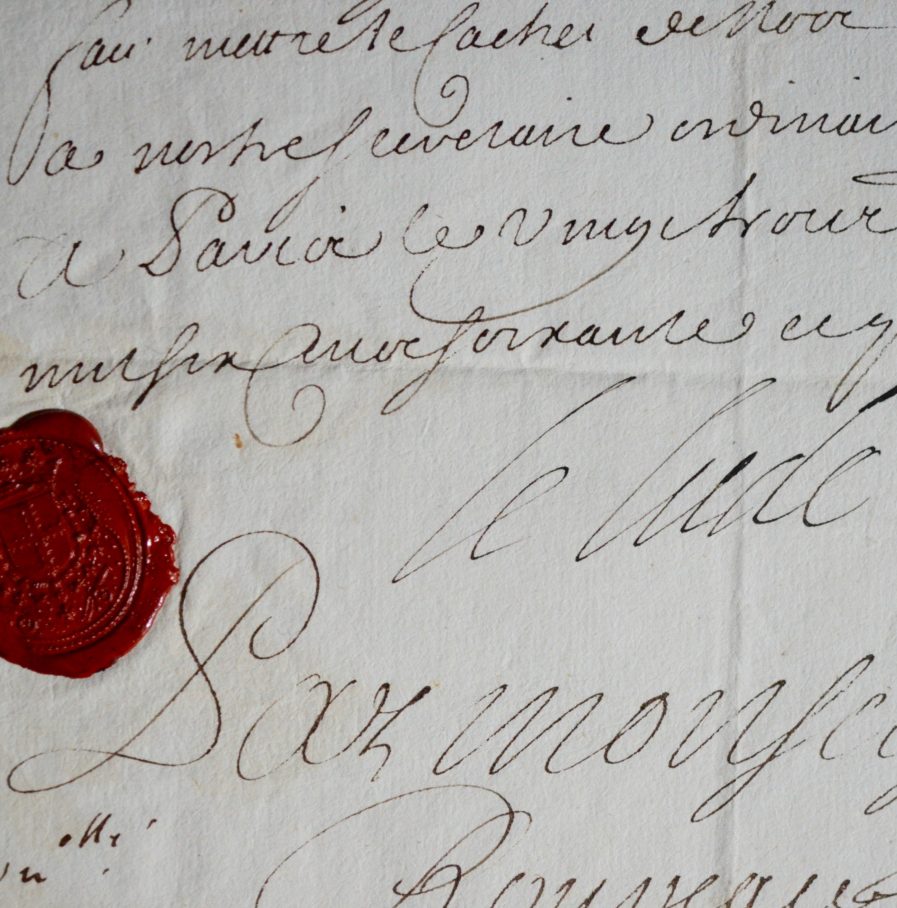 faic mettre le Cachet de Noz
a nostre secretaire ordinai
A Paris le vingt trois
mil six Cens soixante et q
le lude
Par monsei
Rouveau